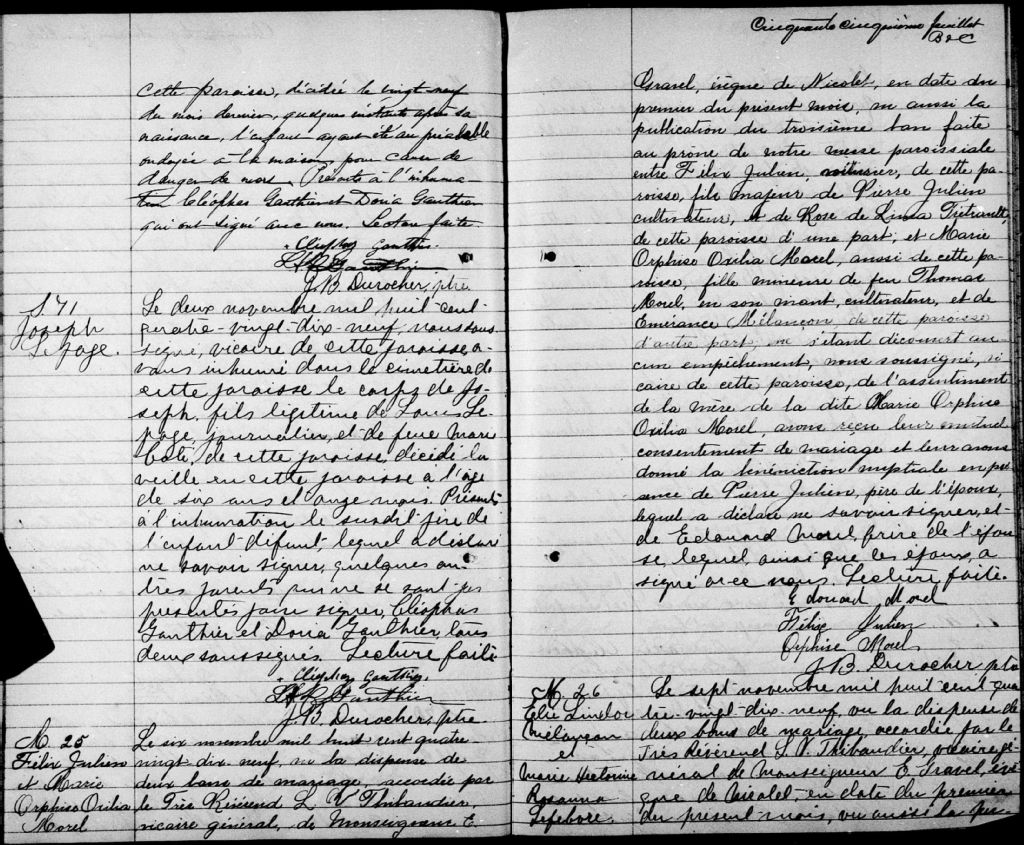 cette paroisse, décédée le vingt neuf
du mois dernier, quelques instants après sa
naissance, l'enfant ayant été au préalable
ondoyée à la maison pour cause de
danger de mort. Présents à l'inhuma
tion Cléophas Gauthier et Doria Gauthier
qui ont signé avec nous. Lecture faite.
Cléophas Gauthier
Gauthier
J. B. Durocher, ptre
S. 71
Joseph
Lepage.
Le deux novembre mil huit cent
quatre-vingt-dix-neuf, nous sous-
signé, vicaire de cette paroisse, a-
vons inhumé dans le cimetière de
cette paroisse le corps de Jo-
seph, fils légitime de Louis Le-
page, journalier, et de feue Marie
Coté, de cette paroisse, décédé la
veille en cette paroisse à l'âge
de six ans et onze mois. Présents
à l'inhumation le susdit père de
l'enfant défunt, lequel a déclaré
ne savoir signer, quelques au-
tres parents qui ne se sont pas
présentés pour signer, Cléophas
Gauthier et Doria Gauthier, tous
deux soussignés. Lecture faite.
Cléophas Gauthier
Gauthier
J. B. Durocher, ptre
M. 25
Félix Julien
et Marie
Orphise Oxilia
Morel
Le six novembre mil huit cent quatre
vingt-dix-neuf, vu la dispense de
deux bans de mariage accordée par
le Très Révérend L V Thibaudier,
vicaire général, de Monseigneur E
Cinquante cinquième feuillet
Gravel, évêque de Nicolet, en date du
premier du présent mois, vu aussi la
publication du troisième ban faite
au prône de notre messe paroissiale
entre Félix Julien, de cette pa-
roisse, fils majeur de Pierre Julien
cultivateur, et de Rose de Lima Tétrault,
de cette paroisse d'une part; et Marie
Orphise Oxilia Morel, aussi de cette pa-
roisse, fille mineure de feu Thomas
Morel, en son vivant, cultivateur, et de
Emérance Mélançon, de cette paroisse
d'autre part; ne s'étant découvert au-
cun empêchement, nous soussigné, vi-
caire de cette paroisse, de l'assentiment
de la mère de la dite Marie Orphise
Oxilia Morel avons reçu leur mutuel
consentement de mariage et leur avons
donné la bénédiction nuptiale en pré-
sence de Pierre Julien, père de l'époux,
lequel a déclaré ne savoir signer, et
de Edouard Morel, frère de l'épou-
se, lequel, ainsi que les époux, a
signé avec nous. Lecture faite.
Edouard Morel
Félix Julien
Orphise Morel
J. B. Durocher ptre
M. 26
Elie Lindor
Mélançon
et
Marie
Rosanna
Lefebvre.
Le sept novembre mil huit cent qua
tre-vingt-dix-neuf, vu la dispense de
deux bans de mariage, accordée par le
Très Révérend L. V. Thibaudier, vicaire gé-
néral de Monseigneur E. Gravel, évê-
que de Nicolet, en date du premier
du présent mois, vu aussi la pu-